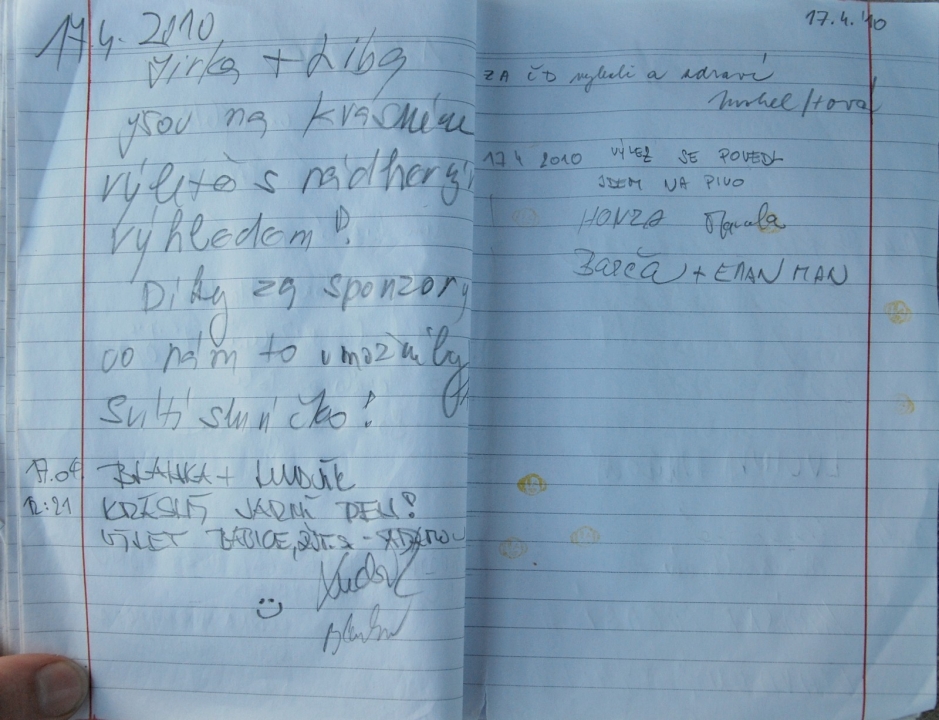 17.4. 2010
Jirka + Liba
jsou na krásném
výletě s nádherný
výhledem!
Díky za sponzory
co nám to umožnily
Svítí sluníčko!
17.04 BLANKA + LUDĚK
12:21 KRÁSNÝ JARNÍ DEN!
VÝLET
17.4.'10
ZA ČD výhledi a zdraví
17.4 2010 VÝLEZ SE POVEDL
JDEM NA PIVO
HONZA
Barča + EMAN MAN